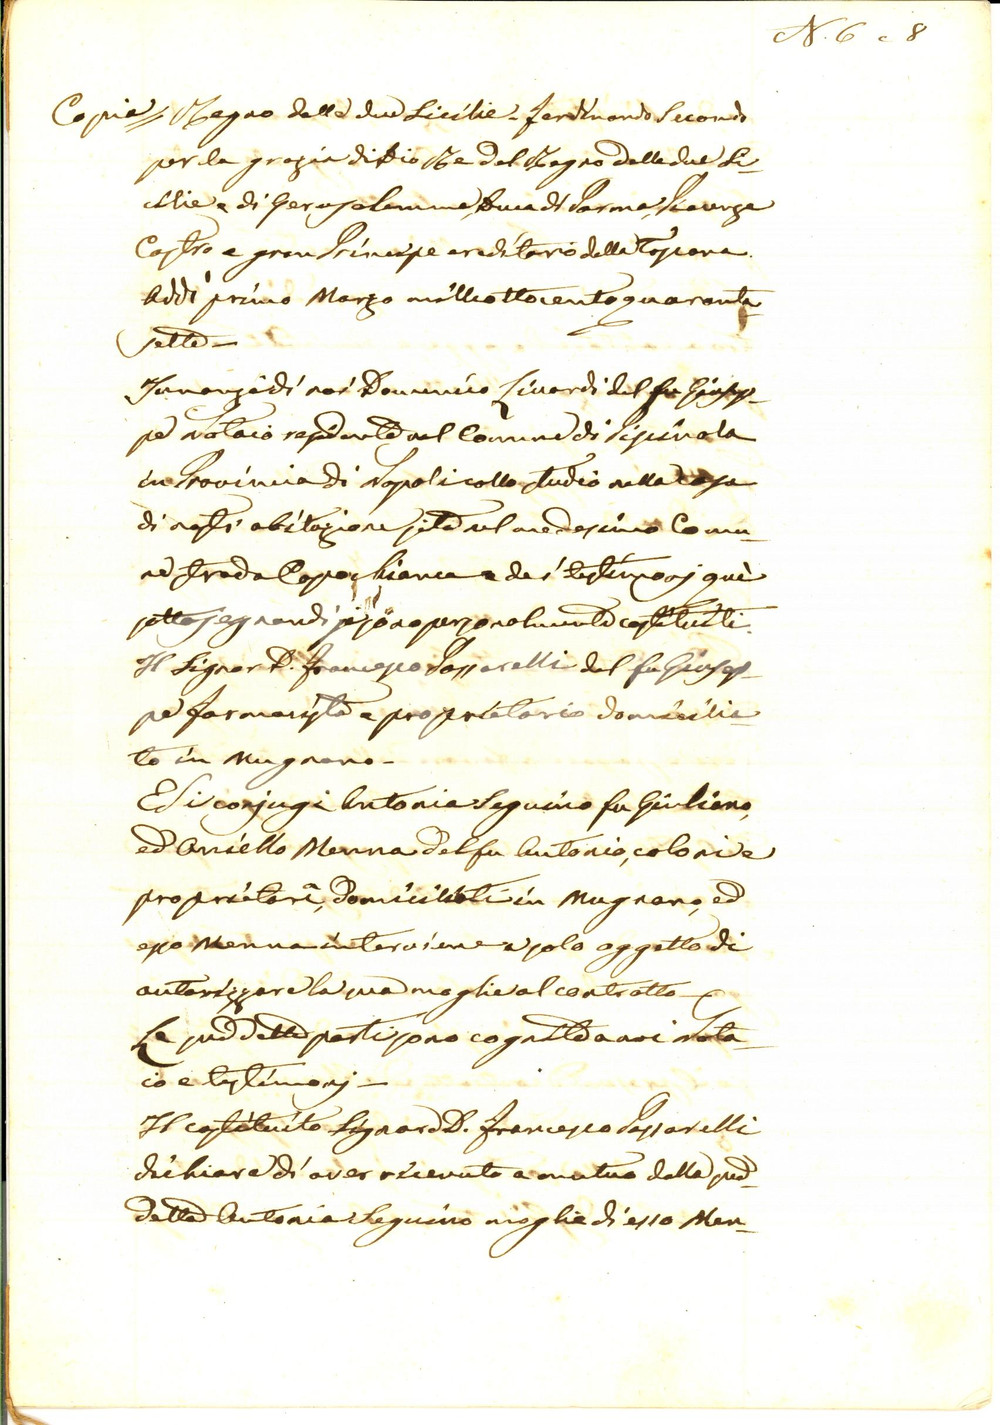 N. 6 e 8
Copia // Regno delle due Sicilie - Ferdinando Secondo
per la grazia di Dio Re del Regno delle due Si=
cilie e di Gerusalemme, Duca di Parma, Piacenza
Castro e gran Principe ereditario della Toscana.
Addì primo Marzo milleottocentoquaranta
sette —
Innanzi di noi Domenico Livardi del fu Giusep=
pe Notaio residente nel Comune di Piscinola
in Provincia di Napoli collo studio nella casa
di nostra abitazione sita nel medesimo Comu=
ne strada Capo, e de' testimonj quì
sottosegnandi si sono personalmente costituiti.
Il Signor D. Francesco Passarelli del fu Giusep=
pe Farmacista e proprietario domicilia=
to in Mugnano —
E li conjugi Antonia Seguino fu Giuliano,
ed Aniello Menna del fu Antonio, coloni e
proprietarî, domiciliati in Mugnano, ed
esso Menna interviene a solo oggetto di
autorizzare la sua moglie al contratto —
Le suddette parti sono cognite a noi Nota=
io e testimonj —
Il costituito Signore D. Francesco Passarelli
dichiara di aver ricevuto a mutuo dalla sud=
detta Antonia Seguino moglie di esso Men=